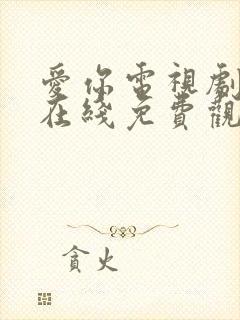 愛你電視劇
在綫免費觀
貪火